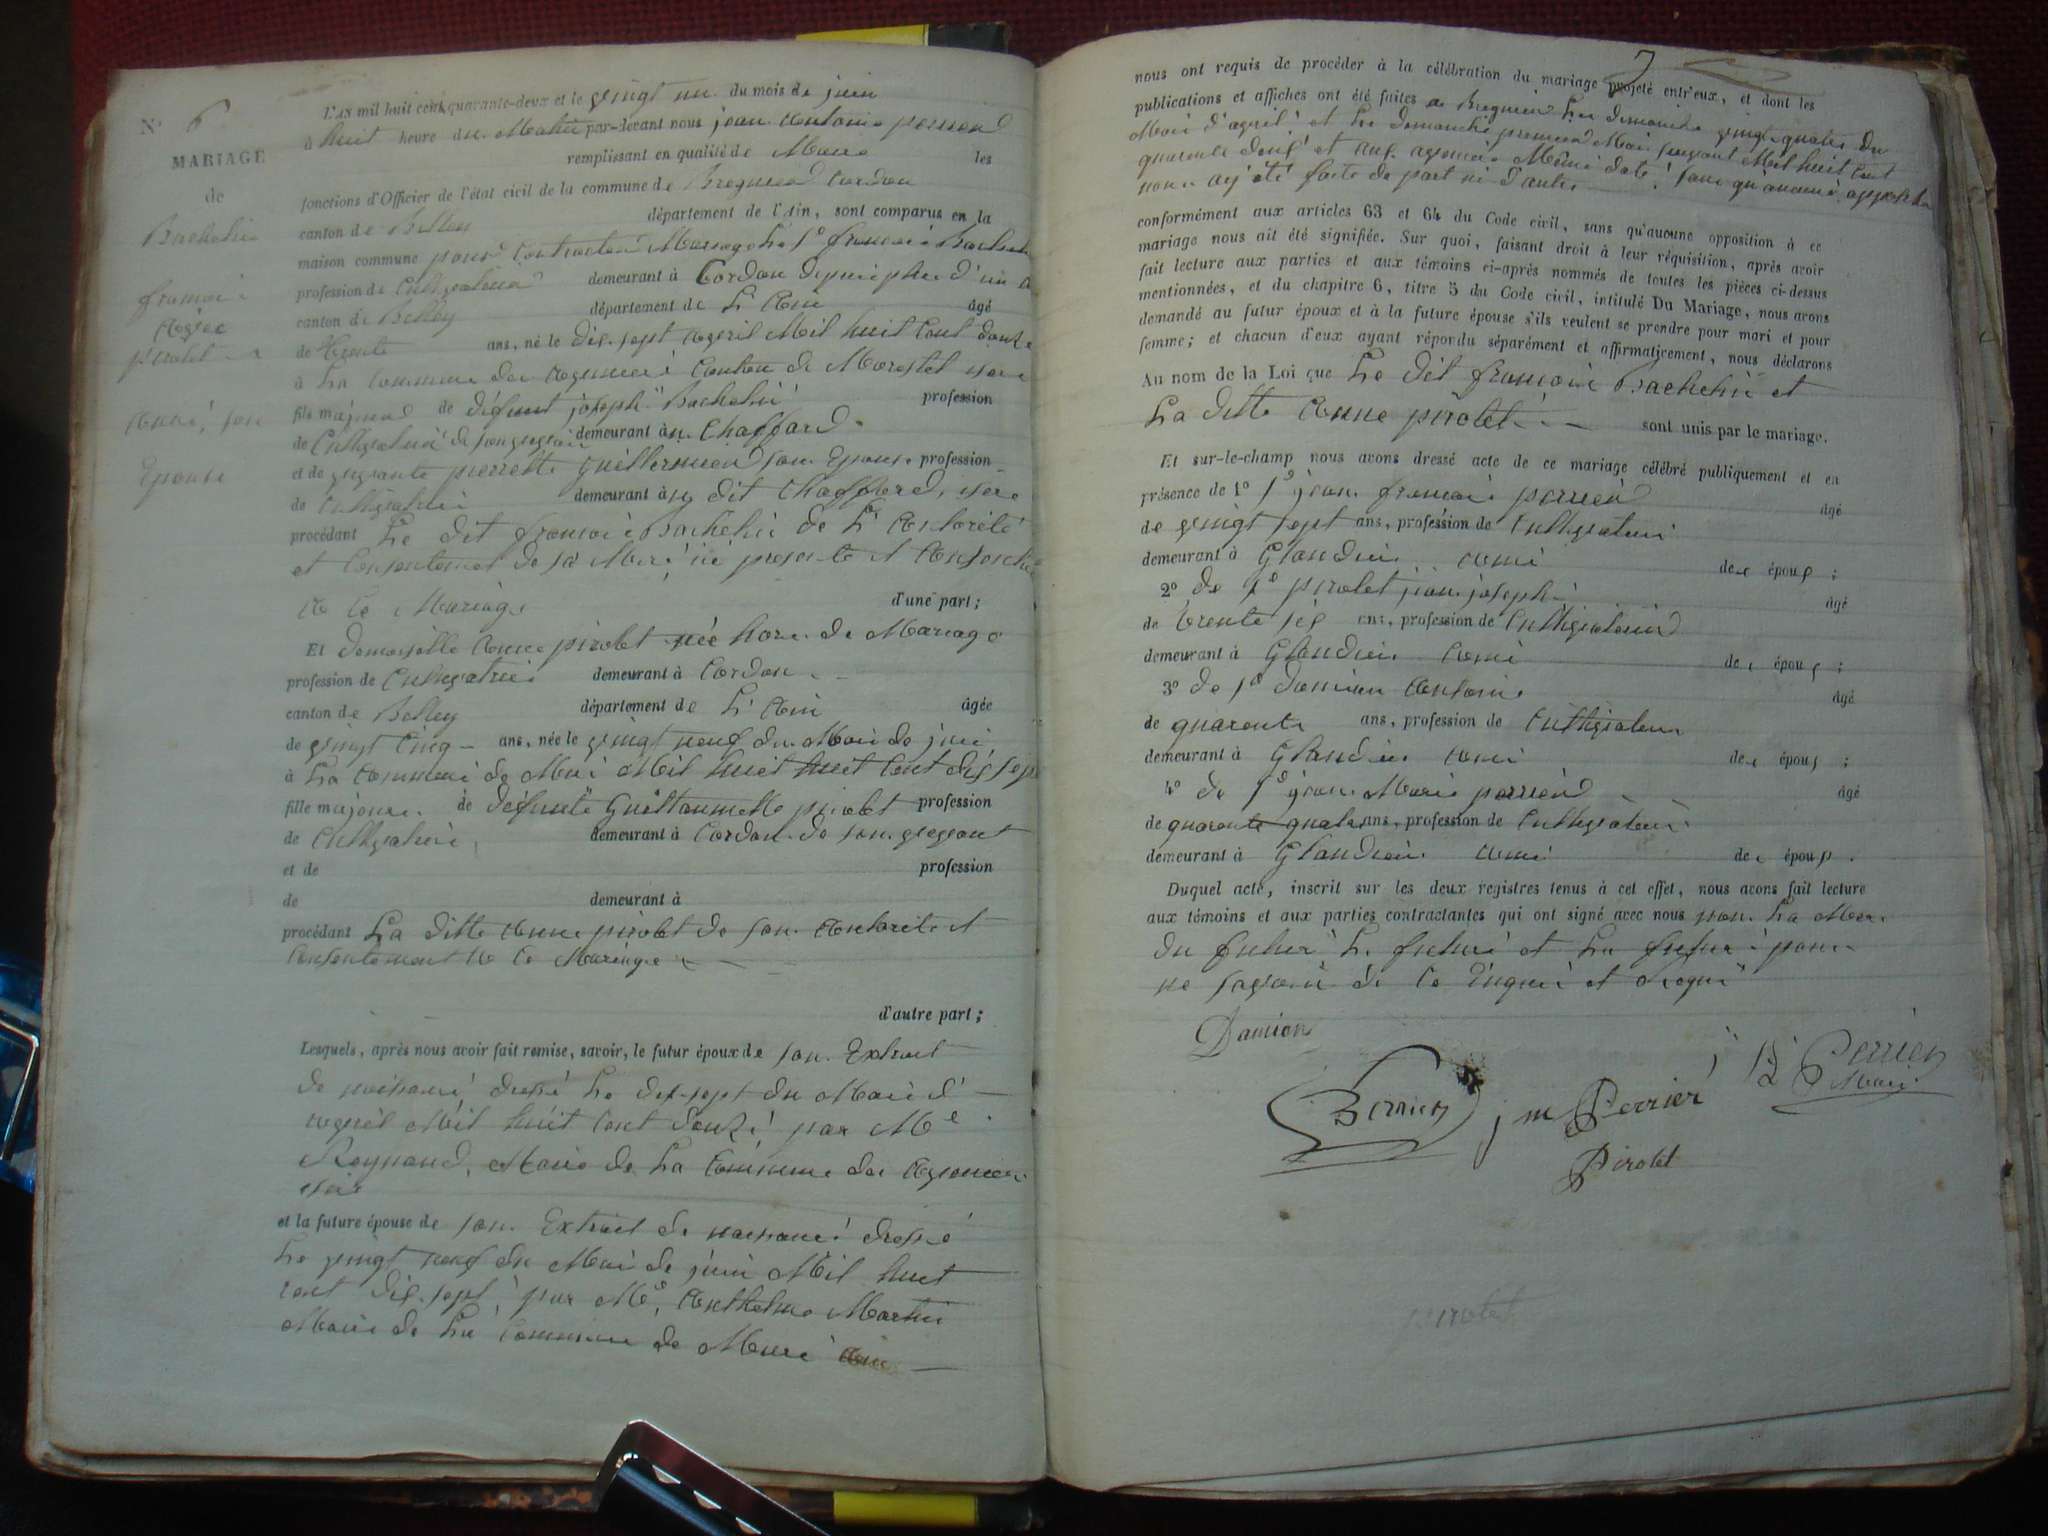 N° 6
MARIAGE
de
Bachelin
françois
Avec
pirolet
Anne, son
Epouse
L'AN mil huit cent quarante-deux et le vingt un du mois de juin
à huit heure du Matin par-devant nous jean Antoine perried
remplissant en qualité de Maire les
fonctions d'Officier de l'état civil de la commune de Bregnied Cordon
canton de Belley département de l'Ain, sont comparus en la
maison commune pour Contracter Mariage Le Sr françois Bachelin
profession de Cultivateur demeurant à Cordon depuis plus d'un a
canton de Belley département de L'Ain âgé
de trente ans, né le dix sept Avril Mil huit Cent douze
à La Commune des Avenier Canton de Morestel isere
fils majeur de défunt joseph Bachelin profession
de Cultivateur de son vivant demeurant à Chaffard
et de vivante pierrette Guillermier son Epouse profession
de Cultivatrice demeurant à dit Chaffard, isere
procédant Le dit françois Bachelin de L'Autorité
et Consentement de sa Mere ici presente et Consentante
A Ce Mariage d'une part;
Et demoiselle Anne pirolet née hors de Mariage
profession de Cultivatrice demeurant à Cordon
canton de Belley département de L'Ain âgée
de vingt Cinq ans, née le vingt neuf du Mois de juin
à La Commune de Muri Mil huit huit Cent dix sept
fille majeure de défunte Guillaumette pirolet profession
de Cultivatrice demeurant à Cordon de son vivant
et de profession
de demeurant à
procédant La ditte Anne pirolet de son Autorité et
Consentement A Ce Mariage
d'autre part;
Lesquels, après nous avoir fait remise, savoir, le futur époux de son Extrait
de naissance dressé Le dix sept du Mois d'
avril Mil huit Cent douze, par Me
Reynaud, Maire de La Commune des Avenier
isere
et la future épouse de son Extrait de naissance dressé
Le vingt neuf du Mois de juin Mil huit
cent dix sept, par Me Anthelme Martin
Maire de La Commune de Muri Ain
7
nous ont requis de procéder à la célébration du mariage projeté entr'eux, et dont les
publications et affiches ont été faites a Bregnied Les dimanche vingt quatre du
Mois d'avril et Le dimanche premier Mai suivant Mil huit Cent
quarante deux et aux avenier Même date, sans qu'aucune opposition
nous ay été faite de part ni d'autre
conformément aux articles 63 et 64 du Code civil, sans qu'aucune opposition à ce
mariage nous ait été signifiée. Sur quoi, faisant droit à leur réquisition, après avoir
fait lecture aux parties et aux témoins ci-après nommés de toutes les pièces ci-dessus
mentionnées, et du chapitre 6, titre 5 du Code civil, intitulé Du Mariage, nous avons
demandé au futur époux et à la future épouse s'ils veulent se prendre pour mari et pour
femme; et chacun d'eux ayant répondu séparément et affirmativement, nous déclarons
Au nom de la Loi que Le dit françois Bachelin et
La ditte Anne pirolet sont unis par le mariage.
Et sur-le-champ nous avons dressé acte de ce mariage célébré publiquement et en
présence de 1° Sr jean françois perried âgé
de vingt sept ans, profession de Cultivateur
demeurant à Glandieu ami des époux;
2° de Sr pirolet jean joseph âgé
de trente six ans, profession de Cultivateur
demeurant à Glandieu ami des époux;
3° de Sr Damian Antoine âgé
de quarante ans, profession de Cultivateur
demeurant à Glandieu ami des époux;
4° de Sr jean Marie perried âgé
de quarante quatre ans, profession de Cultivateur
demeurant à Glandieu ami des époux.
Duquel acte, inscrit sur les deux registres tenus à cet effet, nous avons fait lecture
aux témoins et aux parties contractantes qui ont signé avec nous non La Mere
du futur Le futur et La future pour
ne savoir de Ce Enquis et Requis
Damian
Perrier
j m Perrier
Perrier
Maire
Pirolet